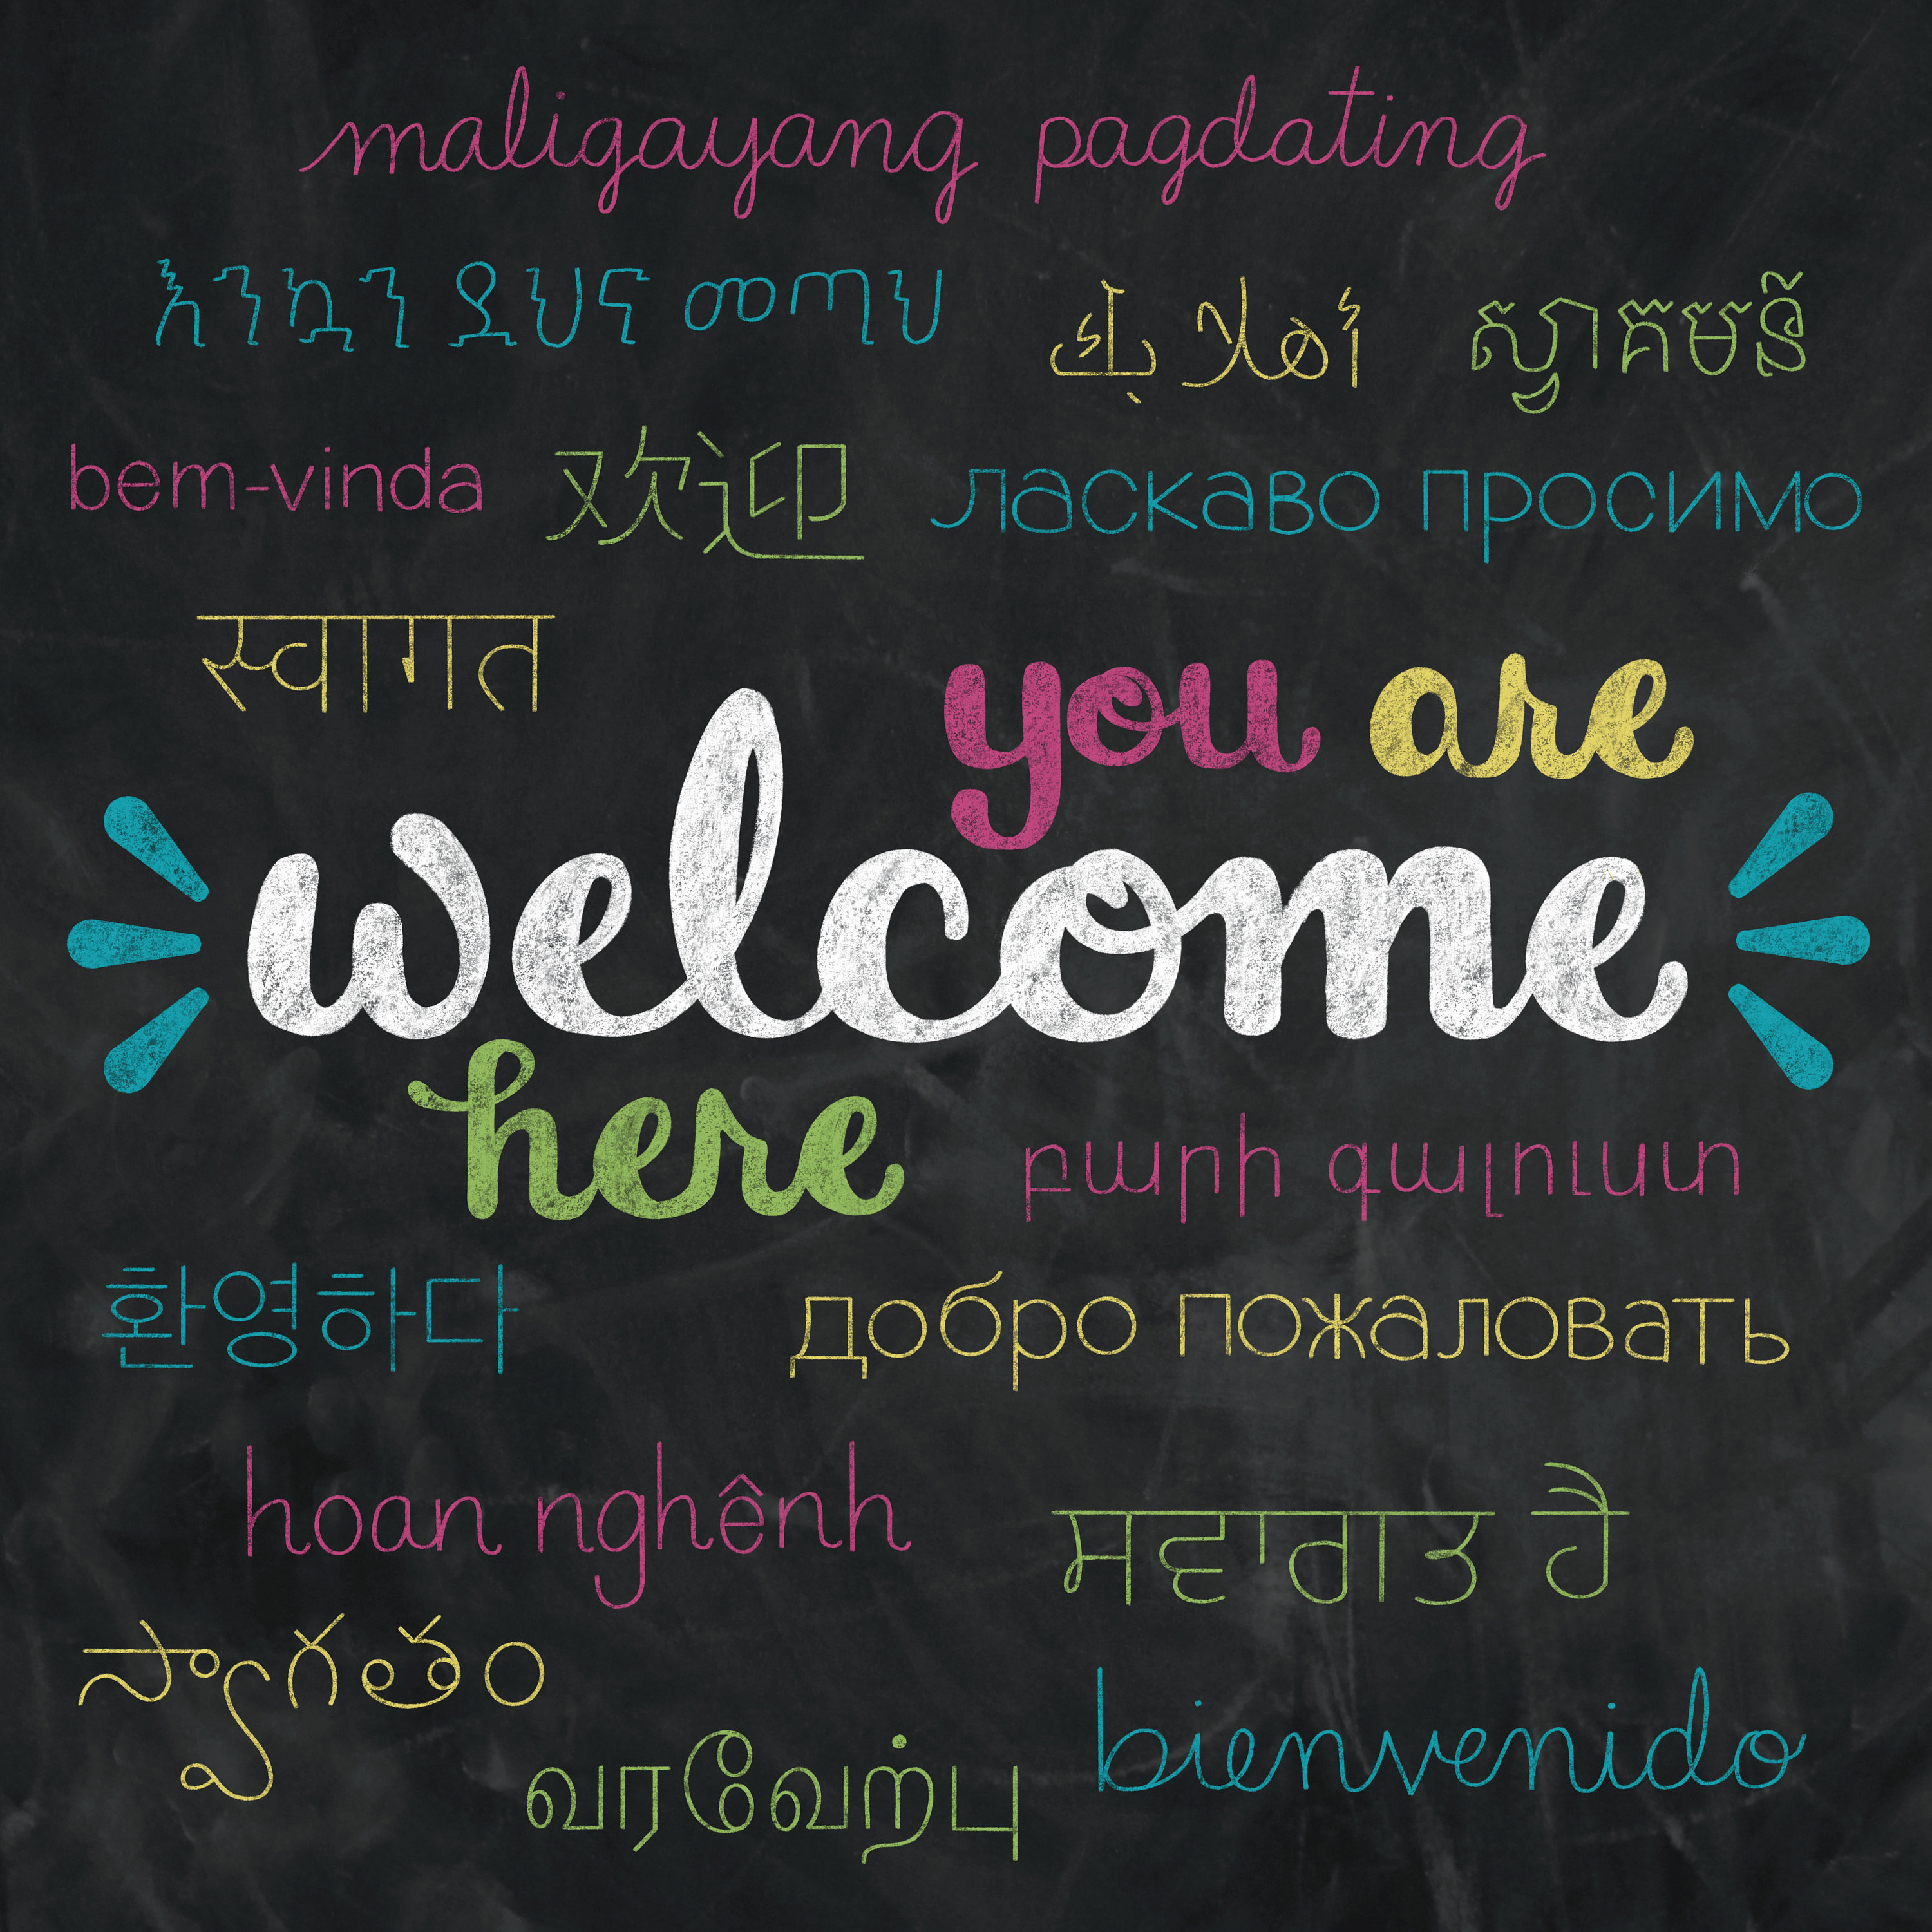 maligayang pagdating
እንኳን ደህና መጣህ
أهلا بك
ស្វាគមន៍
bem-vinda
欢迎
ласкаво просимо
स्वागत
you are
welcome
here
բարի գալուստ
환영하다
добро пожаловать
hoan nghênh
ਸਵਾਗਤ ਹੈ
స్వాగతం
வரவேற்பு
bienvenido